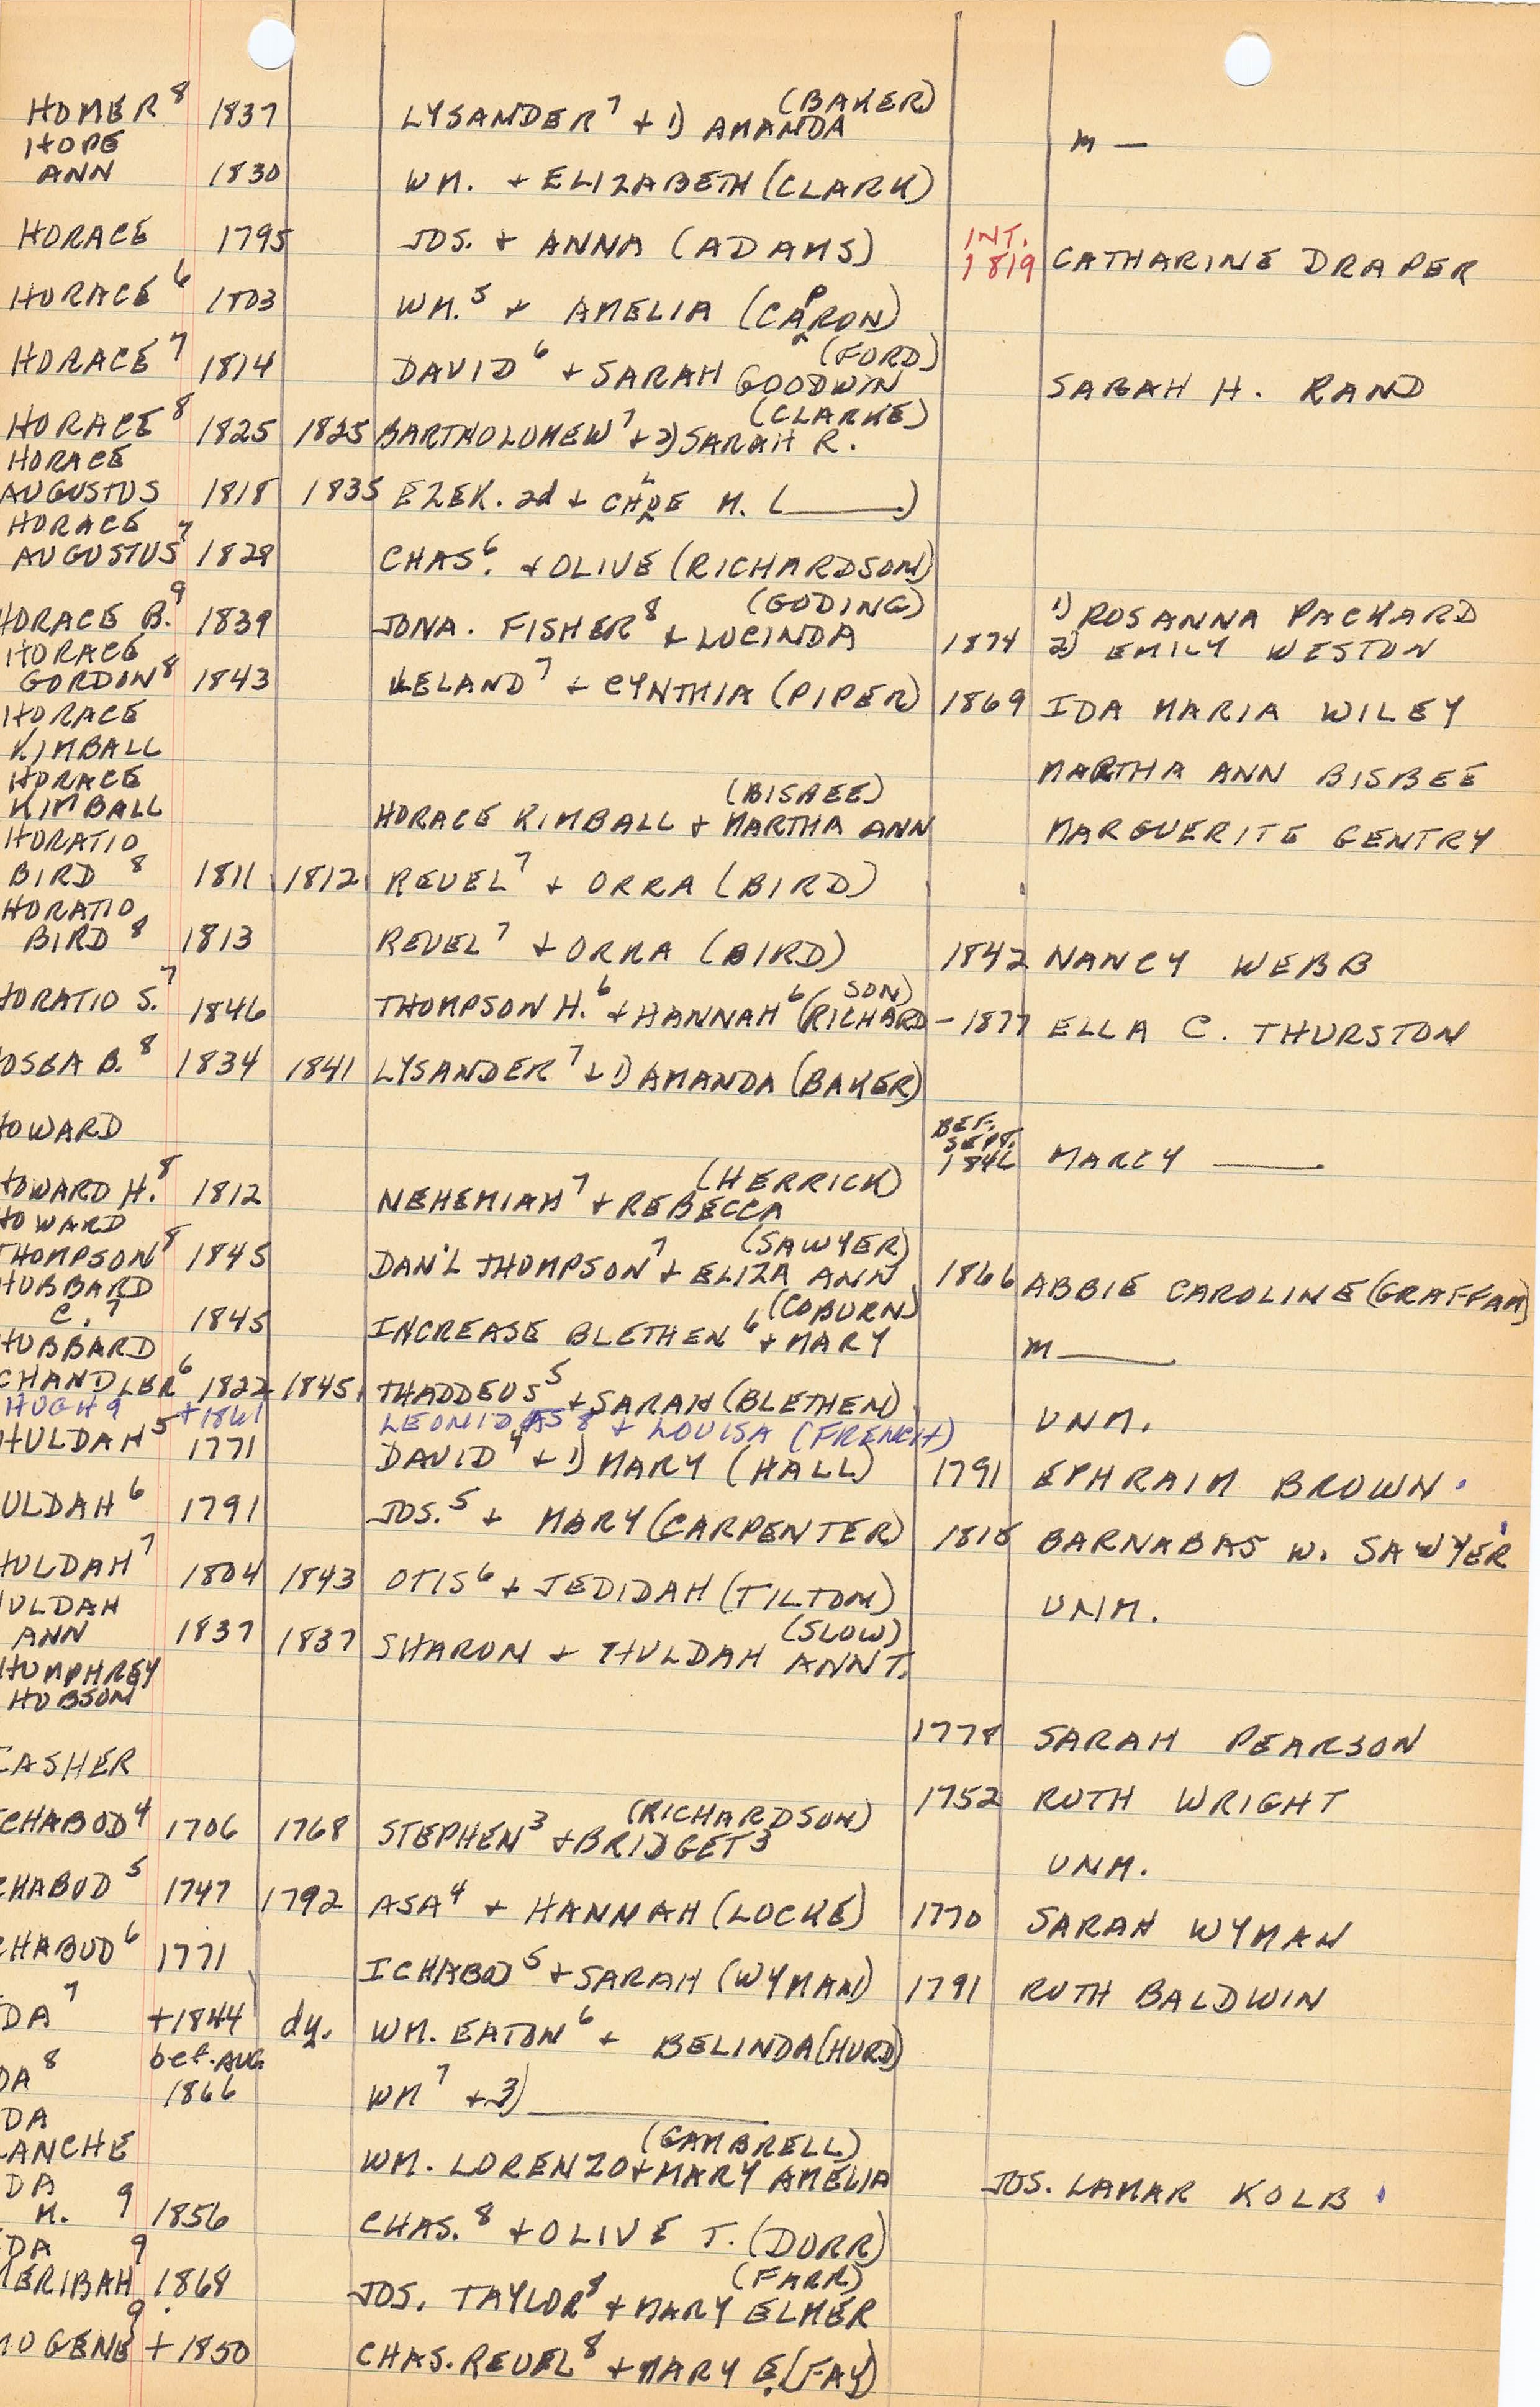 (BAKER)
HOMER 8 1837 LYSANDER 7 + 1) AMANDA m —
HOPE
ANN 1830 WM. + ELIZABETH (CLARK)
HORACE 1795 JOS. + ANNA (ADAMS) INT. 1819 CATHARINE DRAPER
HORACE 6 1803 WM. 5 + AMELIA (CAPRON)
(FORD)
HORACE 7 1814 DAVID 6 + SARAH GOODWIN SARAH H. RAND
(CLARKE)
HORACE 8 1825 1825 BARTHOLOMEW 7 + 2) SARAH R.
HORACE
AUGUSTUS 1818 1835 EZEK. 2d + CHLOE M. (———)
HORACE
AUGUSTUS 7 1828 CHAS. 6 + OLIVE (RICHARDSON)
(GODING) 1) ROSANNA PACKARD
HORACE B. 9 1839 JONA. FISHER 8 + LUCINDA 1874 2) EMILY WESTON
HORACE
GORDON 8 1843 LELAND 7 + CYNTHIA (PIPER) 1869 IDA MARIA WILEY
HORACE
KIMBALL MARTHA ANN BISBEE
HORACE (BISBEE)
KIMBALL HORACE KIMBALL + MARTHA ANN MARGUERITE GENTRY
HORATIO
BIRD 8 1811 1812 REUEL 7 + ORRA (BIRD)
HORATIO
BIRD 8 1813 REUEL 7 + ORRA (BIRD) 1842 NANCY WEBB
SON)
HORATIO S. 7 1846 THOMPSON H. 6 + HANNAH 6 (RICHARD- 1877 ELLA C. THURSTON
OSEA B. 8 1834 1841 LYSANDER 7 + 1) AMANDA (BAKER)
OWARD BEF. SEPT. 1846 MARCY ———
(HERRICK)
HOWARD H. 8 1812 NEHEMIAH 7 + REBECCA
HOWARD (SAWYER)
THOMPSON 8 1845 DAN'L THOMPSON 7 + ELIZA ANN 1866 ABBIE CAROLINE (GRAFFAM)
HUBBARD (COBURN)
C. 7 1845 INCREASE BLETHEN 6 + MARY m———
HUBBARD
CHANDLER 6 1822 1845 THADDEUS 5 + SARAH (BLETHEN) UNM.
HUGH 9 +1861 LEONIDAS 8 + LOUISA (FRENCH)
HULDAH 5 1771 DAVID 4 + 1) MARY (HALL) 1791 EPHRAIM BROWN.
ULDAH 6 1791 JOS. 5 + MARY (CARPENTER) 1818 BARNABAS W. SAWYER
HULDAH 7 1804 1843 OTIS 6 + JEDIDAH (TILTON) UNM.
HULDAH (SLOW)
ANN 1837 1837 SHARON + HULDAH ANN T.
HUMPHREY
HOBSON 1778 SARAH PEARSON
CASHER 1752 RUTH WRIGHT
(RICHARDSON)
CHABOD 4 1706 1768 STEPHEN 3 + BRIDGET 3 UNM.
CHABOD 5 1747 1792 ASA 4 + HANNAH (LOCKE) 1770 SARAH WYMAN
CHABOD 6 1771 ICHABOD 5 + SARAH (WYMAN) 1791 RUTH BALDWIN
DA 7 +1844 dy. WM. EATON 6 + BELINDA (HURD)
bef. AUG.
DA 8 1866 WM 7 + 3) ———
DA (GAMBRELL)
LANCHE WM. LORENZO + MARY AMELIA JOS. LAMAR KOLB
DA
M. 9 1856 CHAS. 8 + OLIVE T. (DORR)
DA 9 (FARR)
MERIBAH 1868 JOS. TAYLOR 8 + MARY ELMER
MOGENE 9 +1850 CHAS. REUEL 8 + MARY E. (FAY)